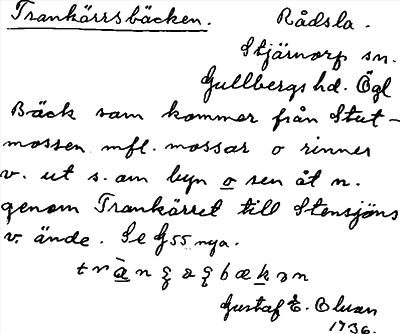 Trankärrsbäcken. Rådsla.
Stjärnorp sn.
Gullbergs hd. Ögl
Bäck som kommer från Stut-
mossen mfl. mossar o rinner
v. ut s. om byn o sen åt n.
genom Trankärret till Stensjöns
v. ände. Se G55 nya.
Gustaf E. Olson
1936.